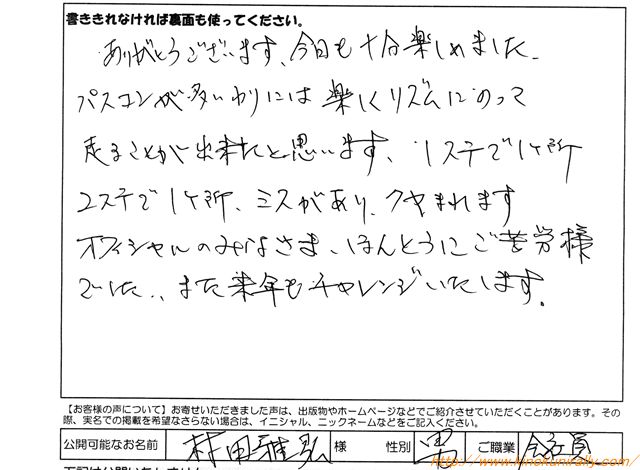 書ききれなければ裏面も使ってください。
ありがとうございます、今日も十分楽しめました。
パスコンが多いわりには楽しくリズムにのって
走ることが出来たと思います、1ステで1ヶ所
2ステで1ヶ所、ミスがあり、クヤまれます
オフィシャルのみなさま、ほんとうにご苦労様
でした、、また来年もチャレンジいたします。
【お客様の声について】お寄せいただきました声は、出版物やホームページなどでご紹介させていただくことがあります。その
際、実名での掲載を希望なさらない場合は、イニシャル、ニックネームなどをご記入ください。
公開可能なお名前 村田雅弘 様 性別 男 ご職業 会社員